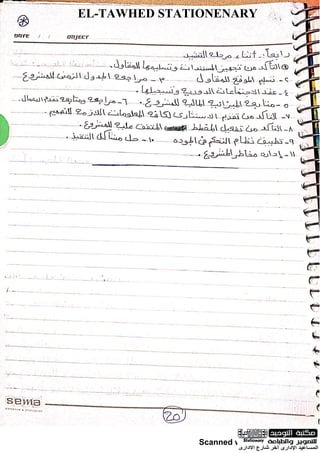 EL-TAWHED STATIONENARY
DATE / / OBJECT
رابعاً: أثناء مرحلة التنفيذ
١- التأكد من تجهيز المستندات وتسليمها للمقاول.
٢- تسليم الموقع للمقاول ٣- مراجعة الجدول الزمنى للمشروع
٤- عقد الاجتماعات الدورية وتسجيلها.
٥- متابعة الميزانية المالية للمشروع. ٦- مراجعة ومتابعة تقدم الأعمال
٧- التأكد من تقديم الاستشارى لكافة المعلومات اللازمة للتصميم
٨- التأكد من تفعيل المخطط المتفق عليه للمشروع.
٩- تطبيق نظام التحكم فى الجودة ١٠- حل مشاكل التنفيذ.
١١- إدارة مخاطر المشروع.
sema
20
Scanned
مكتبة التوحيد
Stationery للتصوير والطباعة
المساعيد الإدارى آخر شارع الإدارى